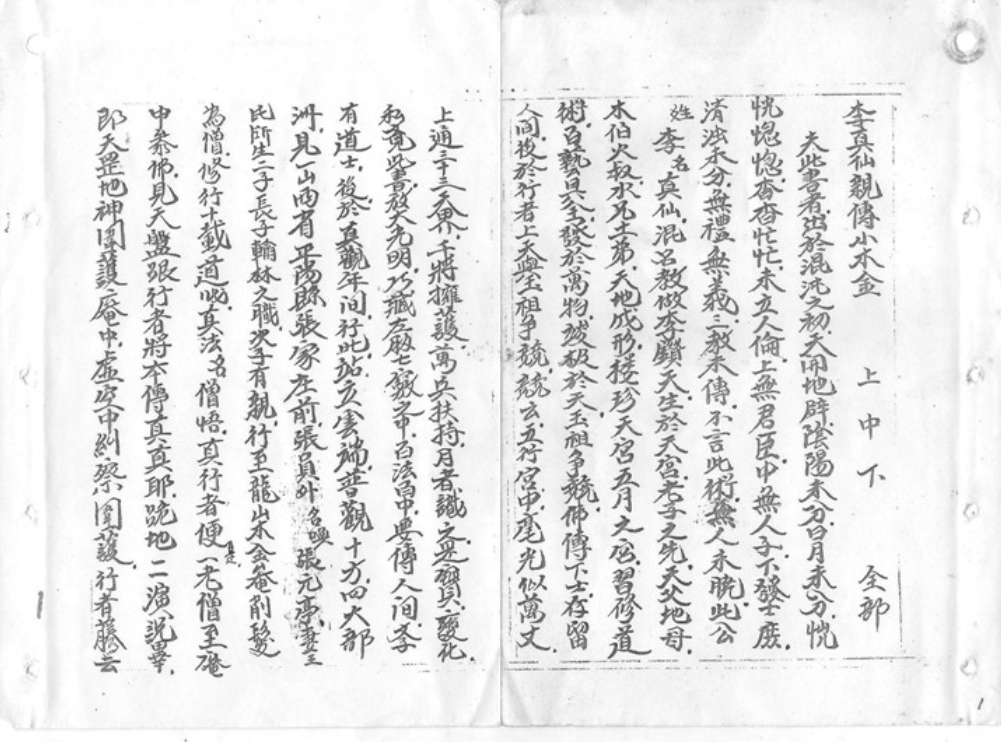 李真仙親傳小木金　上中下　全部
夫此書者出於混沌之初天開地辟陰陽未分日月未分恍
恍惚惚杳杳忙忙未立人倫上無君臣中無人子下發士庶
清浊未分無禮無義三教未傳不言此術無人未曉此公
姓李名真仙混名教做李鑽天生於天宮老子之先天父地母
木伯火叔水兄土弟天地成形接珍天宮五月之宮習修道
術百藝具全發於萬物破於天玉祖争競佛傳下士存留
人間後於行者上天與玉祖争競競玄五行宮中毫光似萬丈
上通三十三天界千將擁護萬兵扶持月者識之是寶貝變化
竟此書放大光明乃藏左殿七竅之中百法皆中要傳人間
有道士後於真觀年间行此站立雲端普觀十方四大部
洲見一山西有平陽縣張家庄前張員外名喚張元亭妻王
氏所生二子長子翰林之職次子有親行至龍山朱金菴削髮
為僧修行十載道成真法名僧悟真行者便一老僧至菴
中叅佛見天盤張行者將本傳真真耶跪地二演說畢
即天罡地神圍護菴中虛空中糾察圍護行者藤云
1